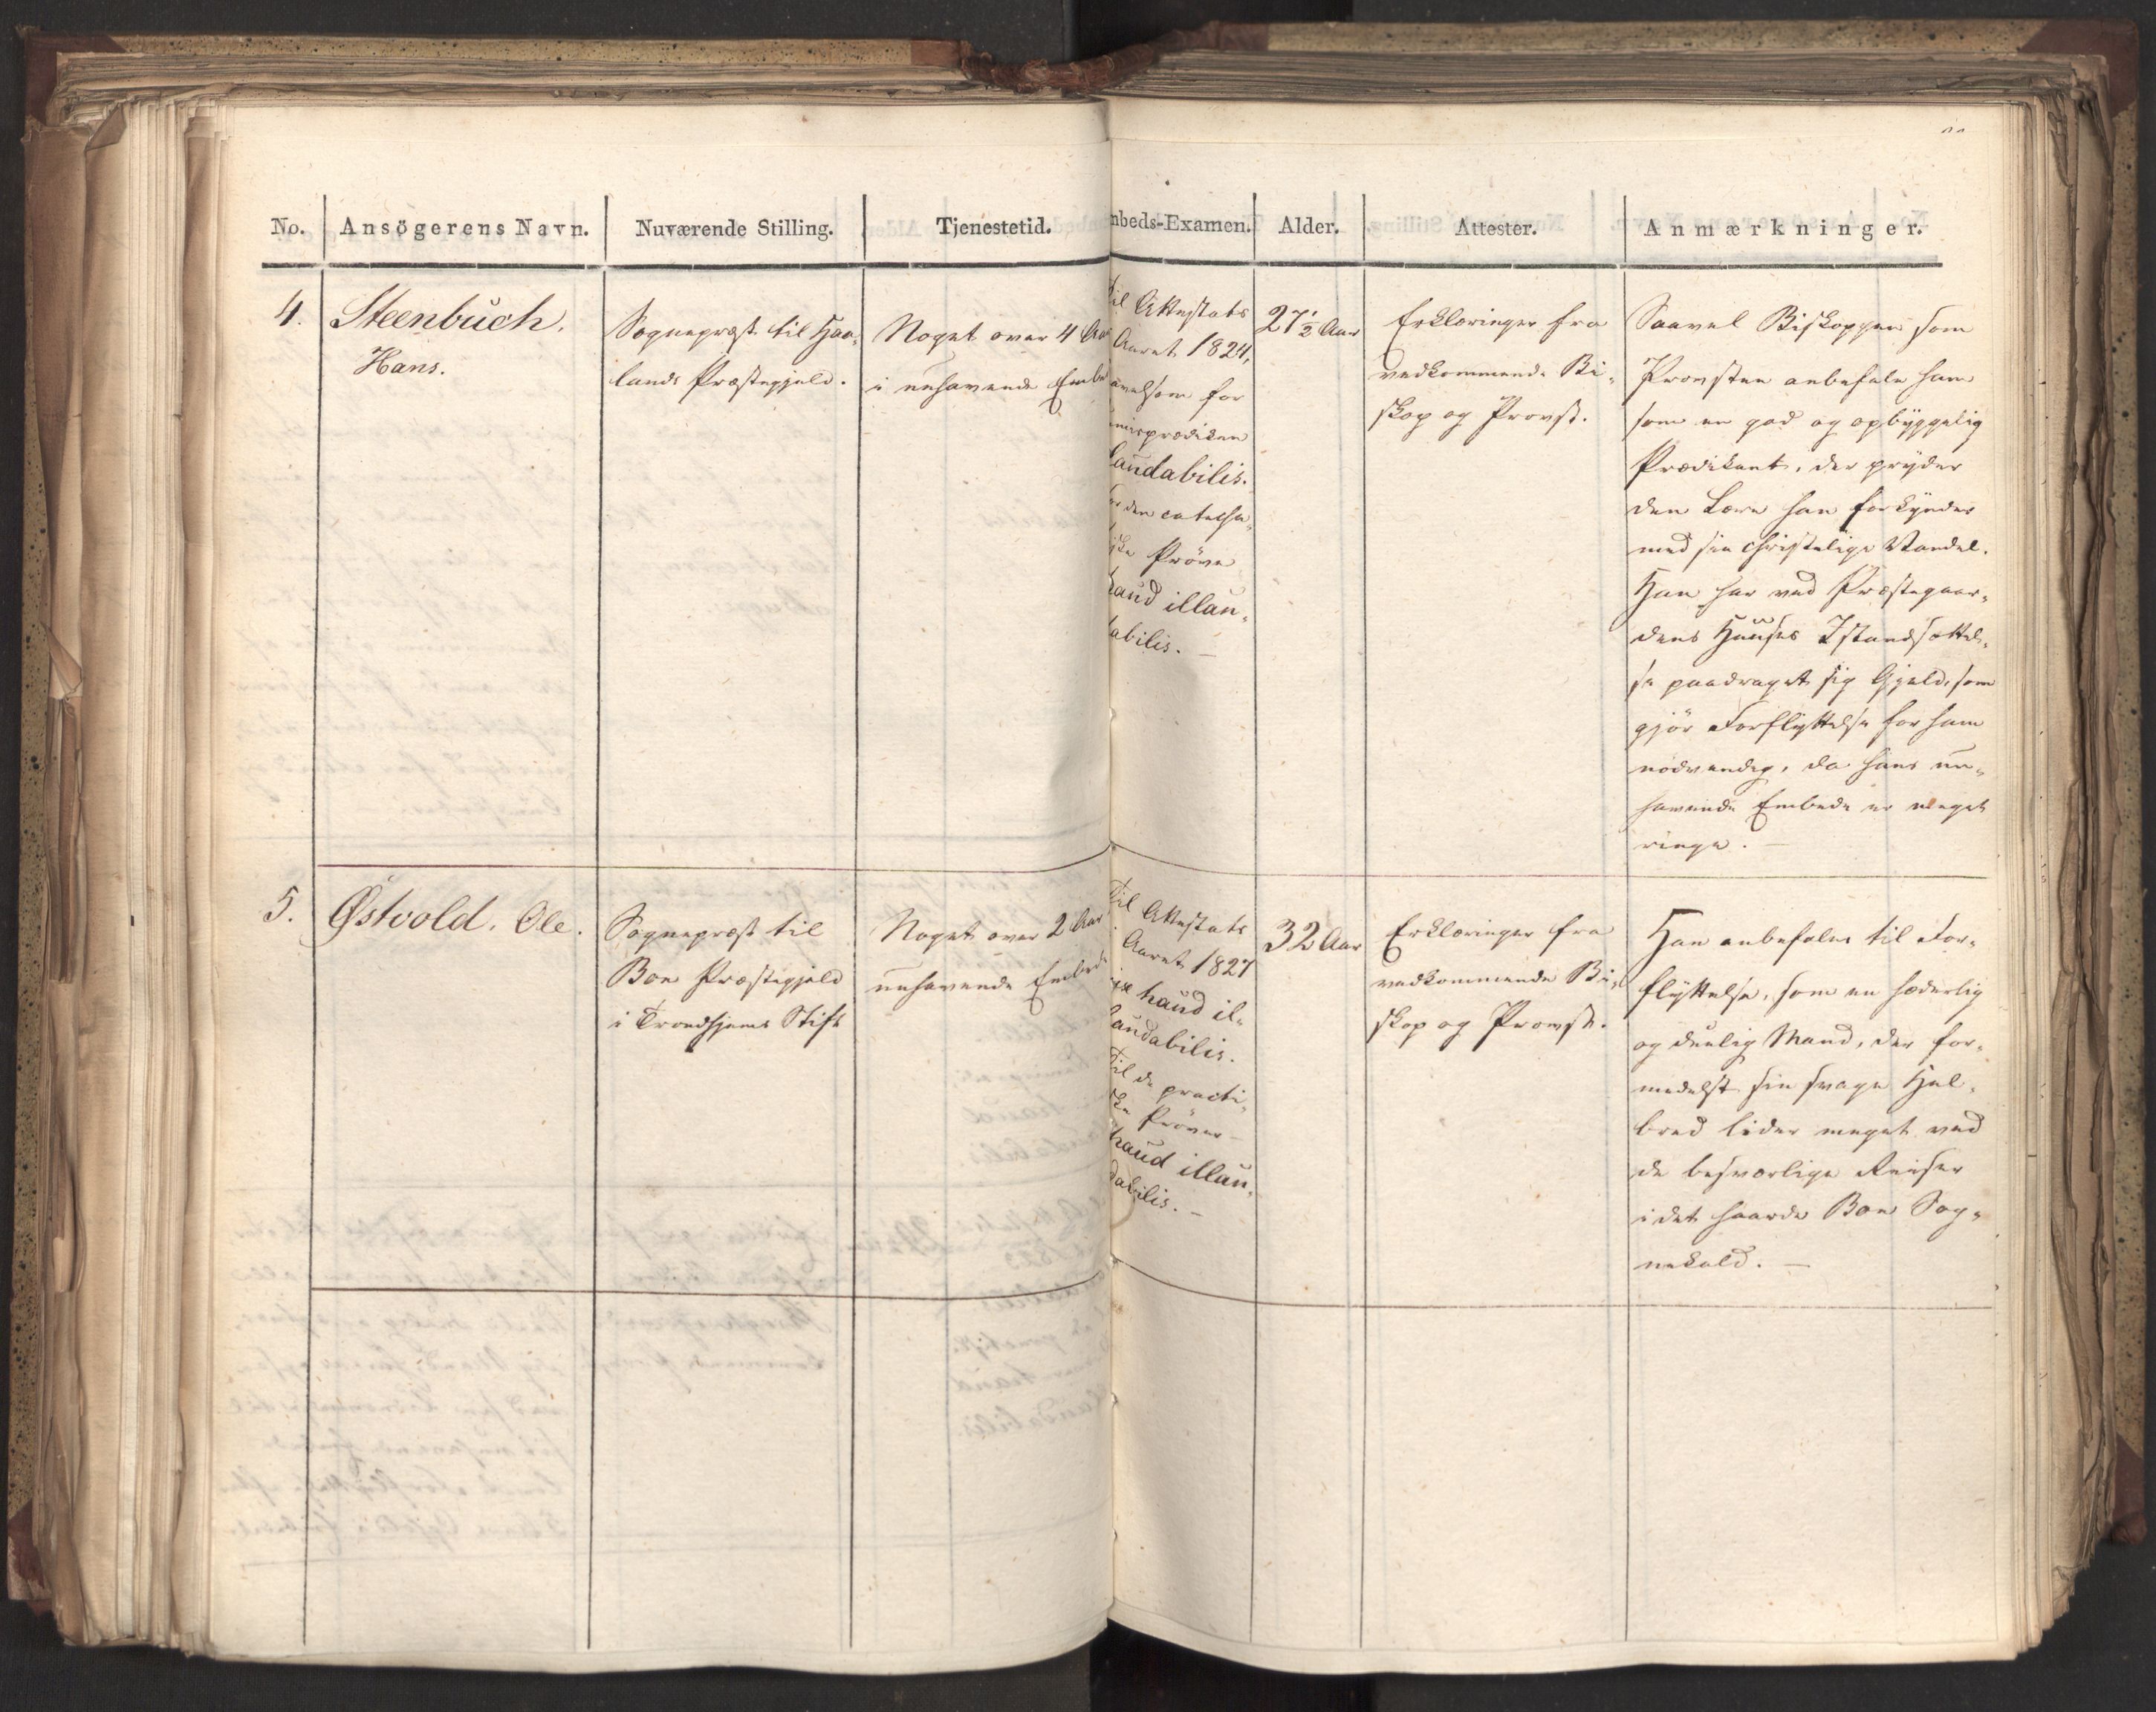 No.
Ansögerens Navn.
Nuværende Stilling.
Tjenestetid.
mbeds-Examen.
Alder.
Attester.
Anmærkninger.
4.
Steenbuch,
Hans.
Sognepræst til Haa-
lands Præstegjeld.
Noget over 4 Aar
i nuhavende Embe
til Attestats
Aaret 1824,
avelsom for
imisprædiken
laudabilis.
for den cateche-
tiske Pröve
haud illau-
dabilis. —
27½ Aar
Erklæringer fra
vedkommende Bi-
skop og Provst.
Saavel Biskoppen som
Provsten anbefale ham
som en god og opbyggelig
Prædikant, der pryder
den Lære han forkynder
med sin christelige Vandel.
Han har ved Præstegaar-
dens Huuses Istandsættel-
se paadraget sig Gjeld, som
gjör Forflyttelse for ham
nödvendig, da hans nu-
havende Embede er meget
ringe. —
5.
Østvold, Ole.
Sognepræst til
Boe Præstegjeld
i Trondhjems Stift
Noget over 2 Aar
nuhavende Embede
Til Attestats
Aaret 1827
haud il-
laudabilis.
Til de practi-
ske Pröver —
haud illau-
dabilis. —
32 Aar
Erklæringer fra
vedkommende Bi-
skop og Provst.
Han anbefales til For-
flyttelse, som en hæderlig
og duelig Mand, der for-
medelst sin svage Hel-
bred lider meget ved
de besværlige Reiser
i det haarde Boe Sog-
nekald. —